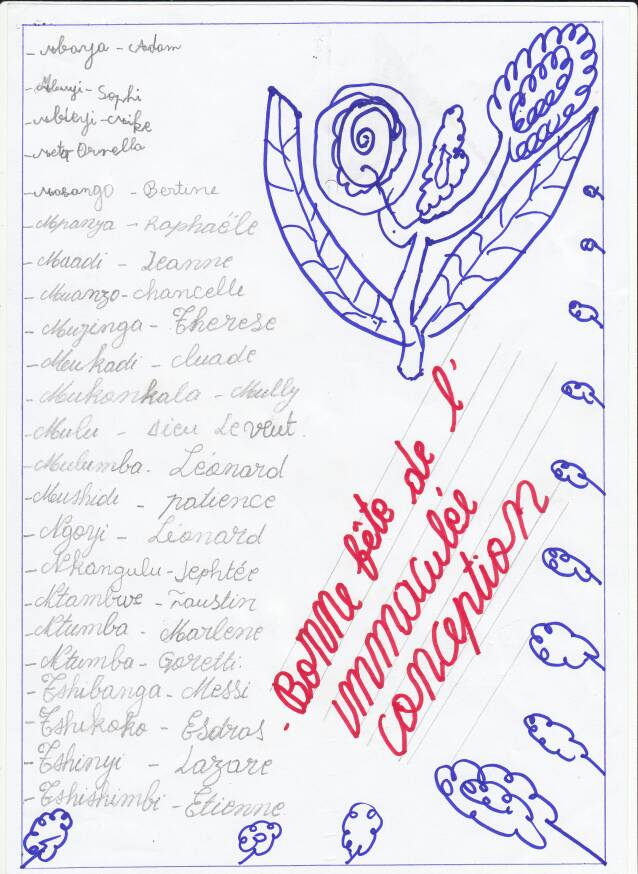 - Mbaya - Adam
- Mbuyi - Sophi
- Mbleyi - Mike
- Meta Ornella
- Mosango - Bertine
- Mpanya - Raphaële
- Muadi - Jeanne
- Muanzo - chancelle
- Mujinga - Therese
- Mukadi - cluade
- Mukonkala - Mully
- Mulu - Dieu Le veut.
- Mulumba - Léonard
- Mushidi - patience
- Ngoyi - Léonard
- Nkangulu - Jephtée
- Ntambwe - Faustin
- Ntumba - Marlene
- Ntumba - Goretti.
- Tshibanga - Messi
- Tshikoko - Esdras
- Tshinyi - Lazare
- Tshishimbi - Etienne
- Bonne fête de l'
immaculée
conception